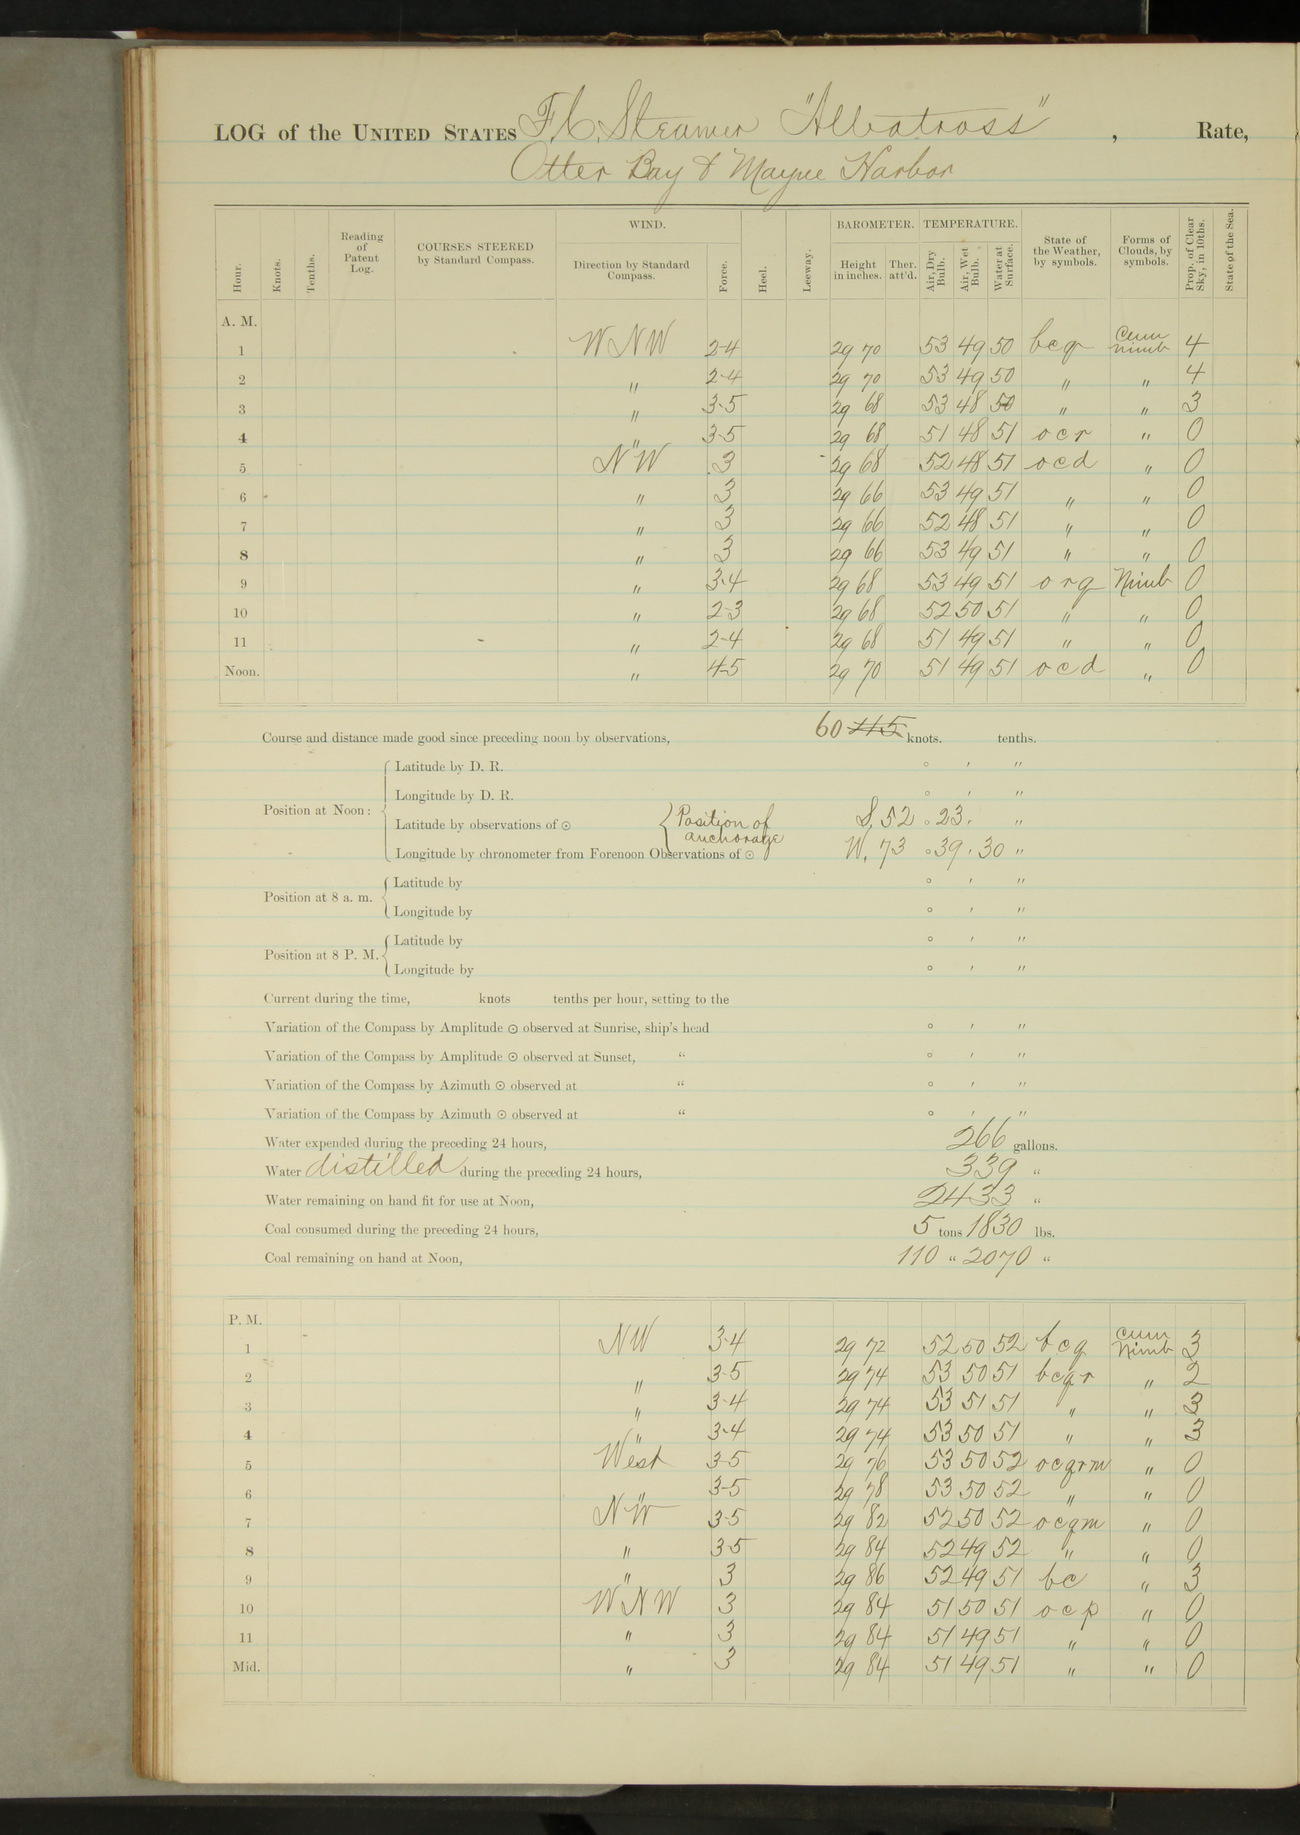 LOG of the UNITED STATES F.C. Steamer "Albatross", Rate,
Otter Bay & Mayne Harbor
Hour. Knots. Tenths. Reading of Patent Log. COURSES STEERED by Standard Compass. WIND. Direction by Standard Compass. Force. Heel. Leeway. BAROMETER. Height in inches. Ther. att'd. TEMPERATURE. Air, Dry Bulb. Air, Wet Bulb. Water at Surface. State of the Weather, by symbols. Forms of Clouds, by symbols. Prop. of Clear Sky, in 10ths. State of the Sea.
A. M.
1 WNW 2-4 29 70 53 49 50 bcq Cum Nimb 4
2 " 2-4 29 70 53 49 50 " " 4
3 " 3-5 29 68 53 48 50 " " 3
4 " 3-5 29 68 51 48 51 ocr " 0
5 NW 3 29 68 52 48 51 ocd " 0
6 " 3 29 66 53 49 51 " " 0
7 " 3 29 66 52 48 51 " " 0
8 " 3 29 66 53 49 51 " " 0
9 " 3-4 29 68 53 49 51 orq Nimb 0
10 " 2-3 29 68 52 50 51 " " 0
11 " 2-4 29 68 51 49 51 " " 0
Noon. " 4-5 29 70 51 49 51 ocd " 0
Course and distance made good since preceding noon by observations, 60 knots. tenths.
Position at Noon:
Latitude by D. R. ° ′ ″
Longitude by D. R. ° ′ ″
Latitude by observations of ☉ Position of anchorage S. 52 ° 23 ′ ″
Longitude by chronometer from Forenoon Observations of ☉ W. 73 ° 39 ′ 30 ″
Position at 8 a. m.
Latitude by ° ′ ″
Longitude by ° ′ ″
Position at 8 P. M.
Latitude by ° ′ ″
Longitude by ° ′ ″
Current during the time, knots tenths per hour, setting to the
Variation of the Compass by Amplitude ☉ observed at Sunrise, ship's head ° ′ ″
Variation of the Compass by Amplitude ☉ observed at Sunset, " ° ′ ″
Variation of the Compass by Azimuth ☉ observed at " ° ′ ″
Variation of the Compass by Azimuth ☉ observed at " ° ′ ″
Water expended during the preceding 24 hours, 266 gallons.
Water distilled during the preceding 24 hours, 339 "
Water remaining on hand fit for use at Noon, 2433 "
Coal consumed during the preceding 24 hours, 5 tons 1830 lbs.
Coal remaining on hand at Noon, 110 " 2070 "
P. M.
1 NW 3-4 29 72 52 50 52 bcq Cum Nimb 3
2 " 3-5 29 74 53 50 51 bcqr " 2
3 " 3-4 29 74 53 51 51 " " 3
4 " 3-4 29 74 53 50 51 " " 3
5 West 3-5 29 76 53 50 52 ocqrm " 0
6 " 3-5 29 78 53 50 52 " " 0
7 NW 3-5 29 82 52 50 52 ocqm " 0
8 " 3-5 29 84 52 49 52 " " 0
9 " 3 29 86 52 49 51 bc " 3
10 WNW 3 29 84 51 50 51 ocp " 0
11 " 3 29 84 51 49 51 " " 0
Mid. " 3 29 84 51 49 51 " " 0